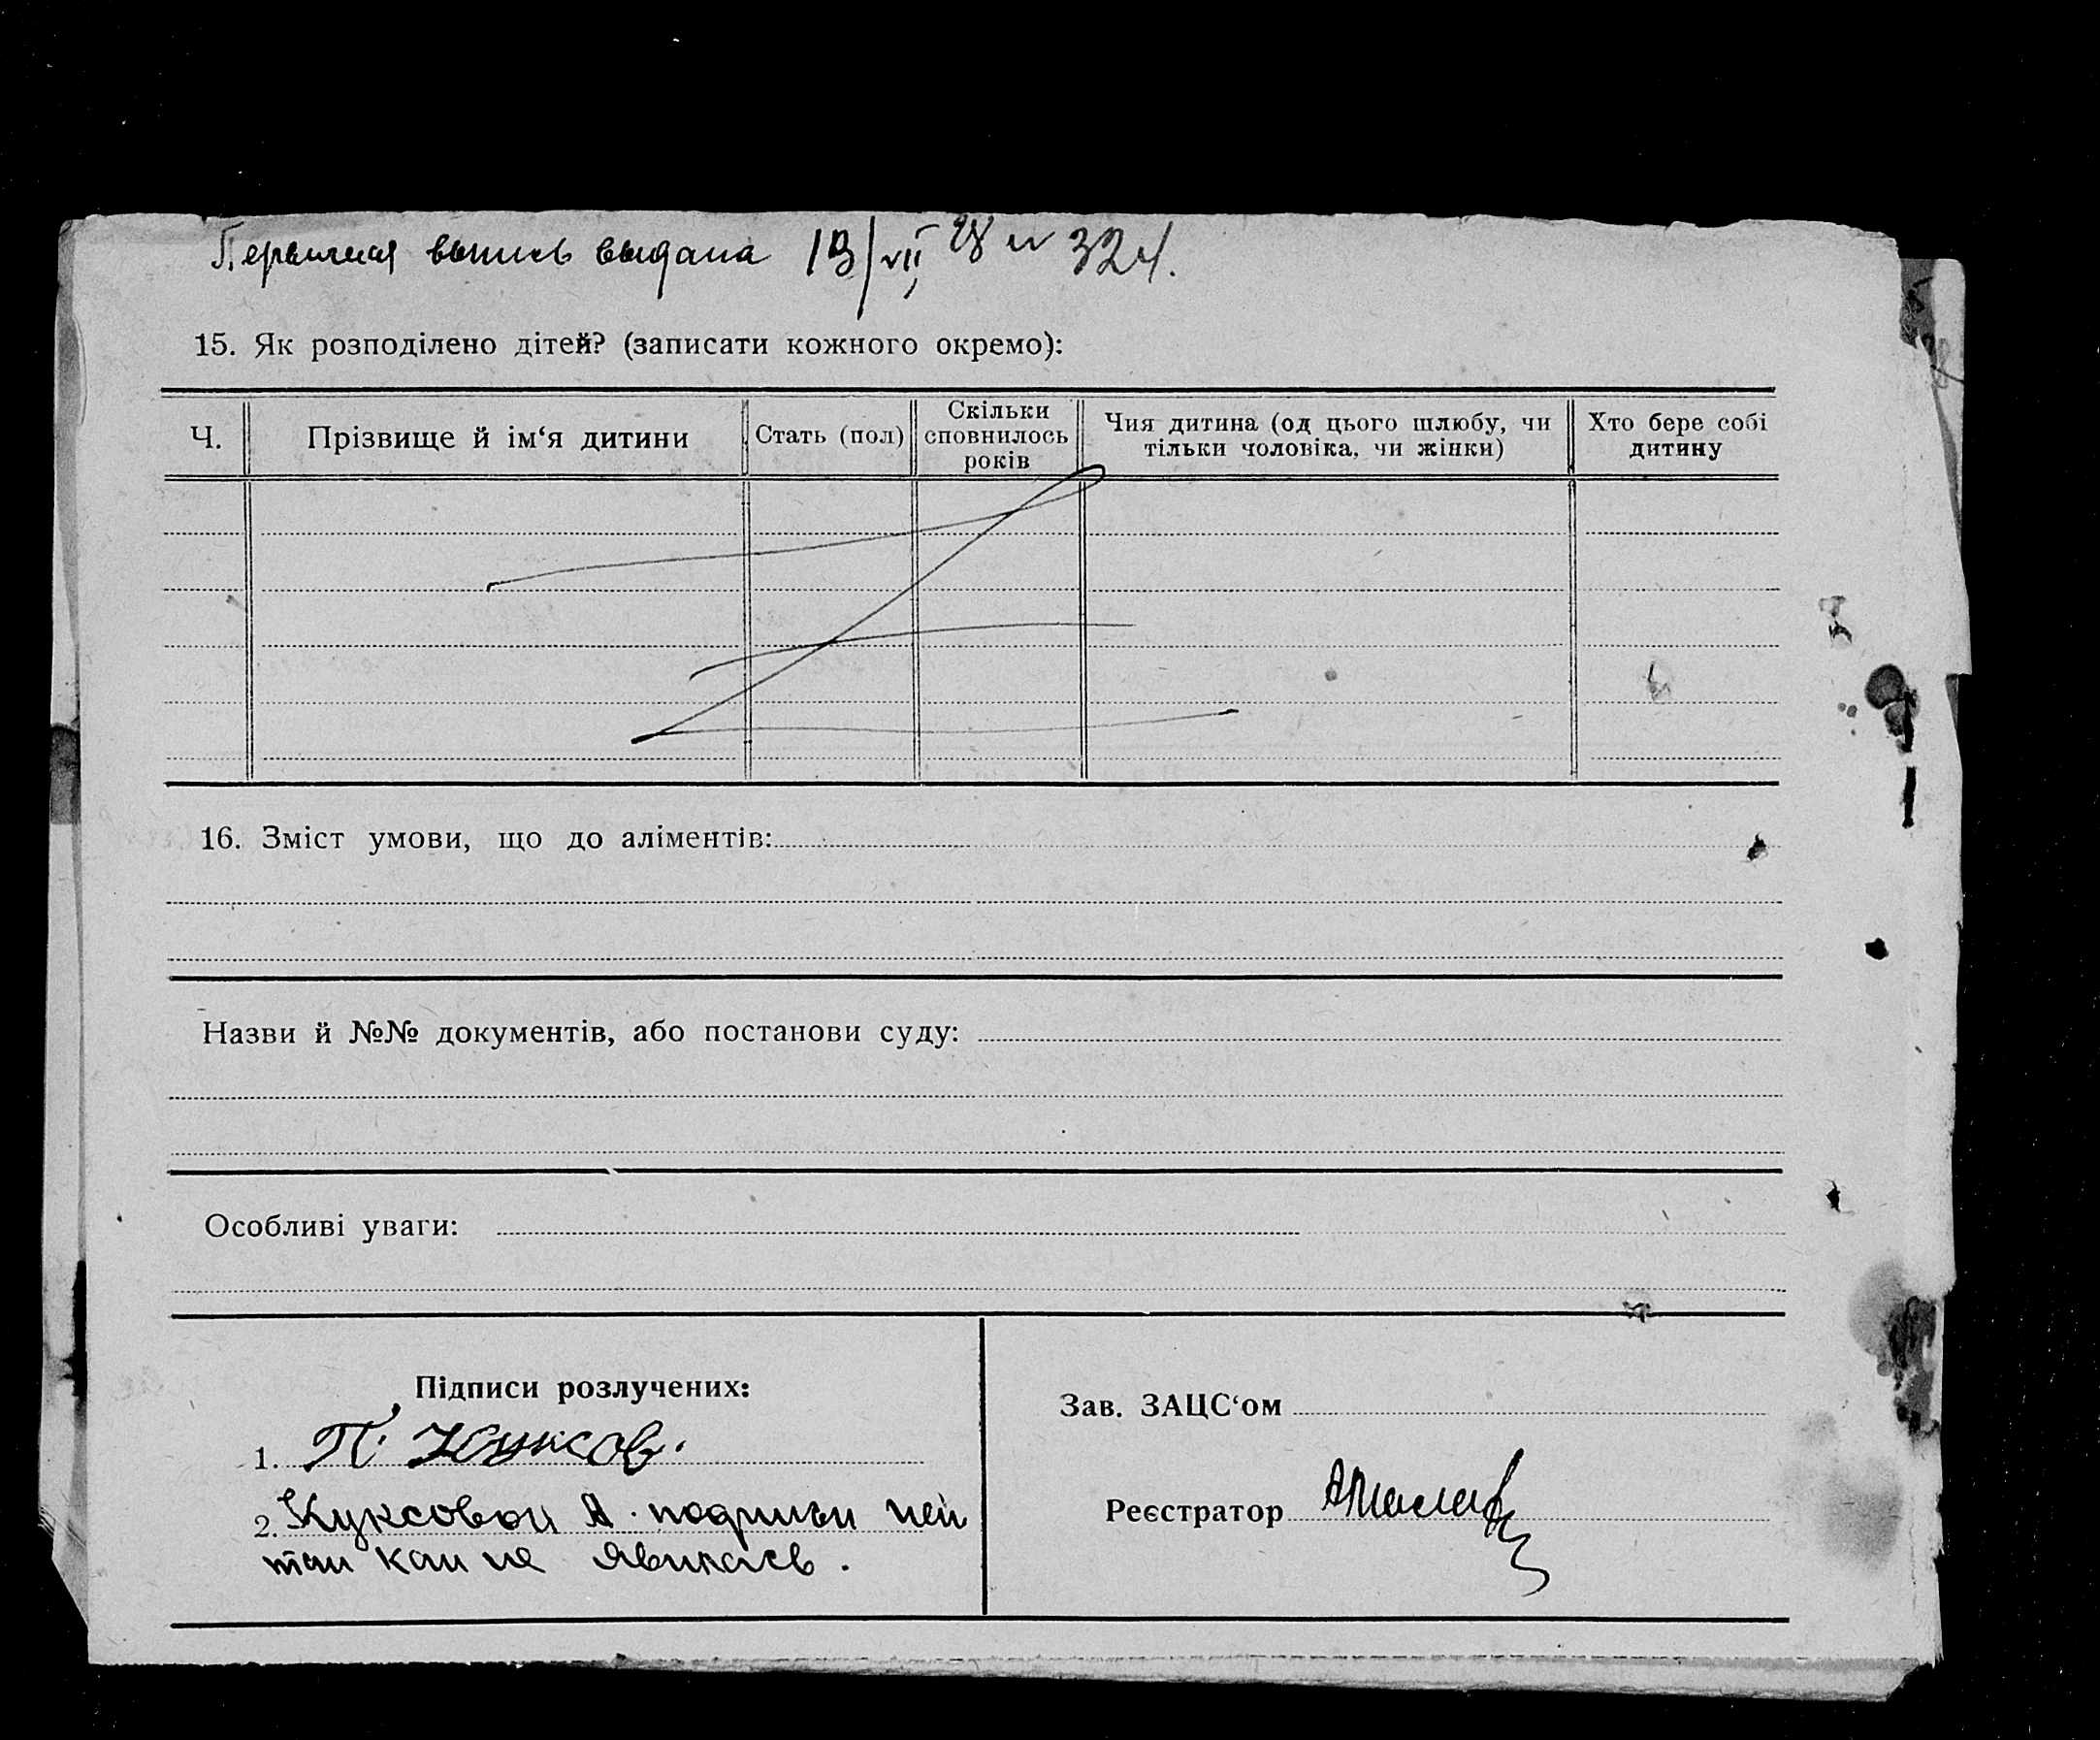 Первичная выпись выдана 13/VII 28 № 324.
15. Як розподілено дітей? (записати кожного окремо):
Ч.
Прізвище й ім‘я дитини
Стать (пол)
Скільки
сповнилось
років
Чия дитина (од цього шлюбу, чи
тільки чоловіка, чи жінки)
Хто бере собі
дитину
16. Зміст умови, що до аліментів:
Назви й №№ документів, або постанови суду:
Особливі уваги:
Підписи розлучених:
1. П. Куксов.
2. Куксовой А. подписи нет
так как не явилась.
Зав. ЗАЦС‘ом
Реєстратор